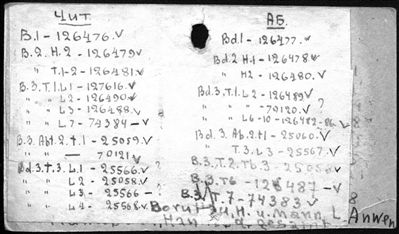 Чит
В.1 - 126476.v
В.2. Н.2 - 126479v
" " T.1-2 - 126481.v
В.3.T.1.L1 - 127616.v
" " L2 - 126490.v
" " L3 - 126488.v
" " L7 - 74384 - v
В.3. Abt.2.t1 - 25059.v
" " — 70121v
Bd.3.T.3. L.1 - 25566.v ?
" " L2 - 25058.v
" " L3 - 25566 - ?
" " L4 - 25568.v
АБ.
Bd.1 - 126477.v
Bd.2 H.1 - 126478v
" " H2 - 126480.v
Bd.3.T.1.L2 - 126489v
" " " " - 70120.v ?
" " L6-10 - 126482-86.v
Bd.3. Ab.2.t1 - 25060.v
" T.3.L3 - 25567.v
B.3.T.2.Tb.3 - 25056 ?
B.3.T6 - 126487 - v
B.3/1 T.7 - 74383 v
Anwen